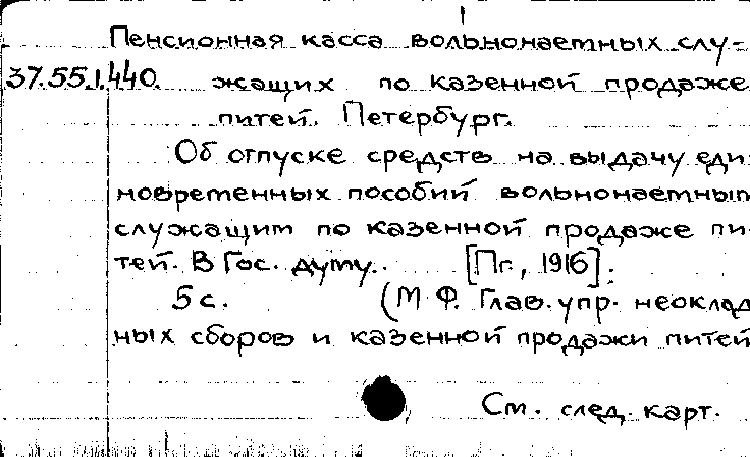 Пенсионная касса вольнонаемных слу-
37.55.1.440. жащих по казенной продаже
питей. Петербург.
Об отпуске средств на выдачу еди-
новременных пособий вольнонаемным
служащим по казенной продаже пи-
тей. В Гос. думу. [Пг., 1916].
5 с. (М. Ф. Глав. упр. неоклад-
ных сборов и казенной продажи питей
См. след. карт.